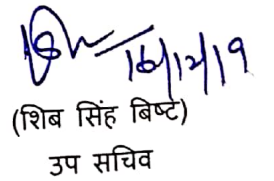 16/12/19
(शिब सिंह बिष्ट)
उप सचिव